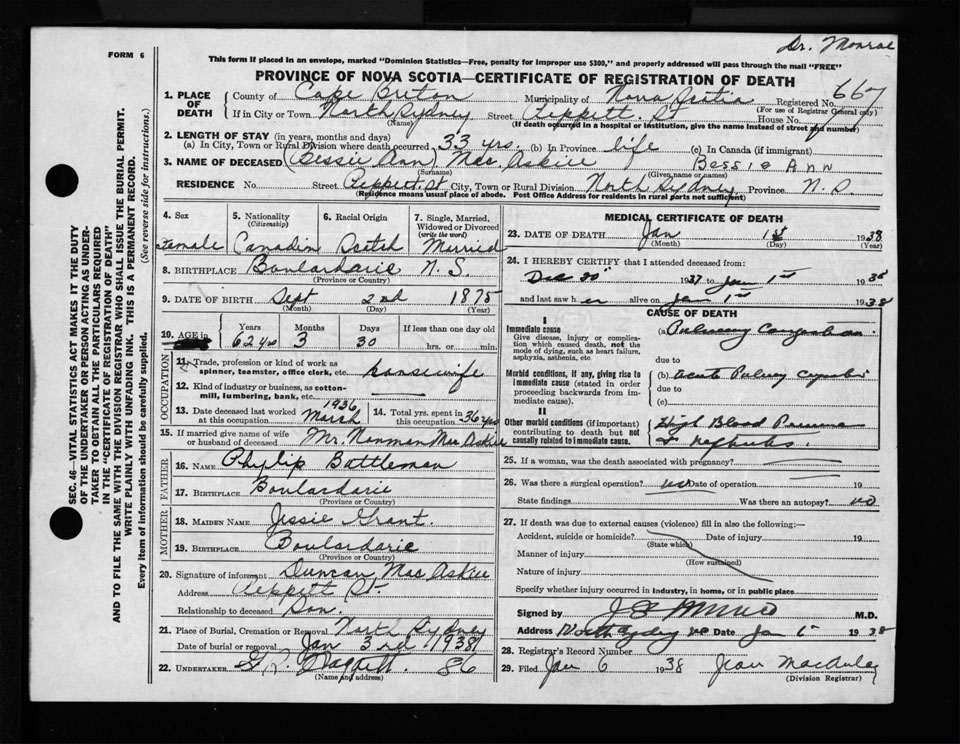 Dr. Monroe
FORM 6
This form if placed in an envelope, marked "Dominion Statistics—Free, penalty for improper use $300," and properly addressed will pass through the mail "FREE"
PROVINCE OF NOVA SCOTIA—CERTIFICATE OF REGISTRATION OF DEATH
1. PLACE OF DEATH County of Cape Breton Municipality of Nova Scotia Registered No. 667
(For use of Registrar General only)
If in City or Town North Sydney Street St House No.
(Name) (If death occurred in a hospital or institution, give the name instead of street and number)
2. LENGTH OF STAY (in years, months and days)
(a) In City, Town or Rural Division where death occurred 33 yrs. (b) In Province life (c) In Canada (if immigrant)
3. NAME OF DECEASED (Bessie Ann) Mac Askill Bessie Ann
(Surname) (Given name or names)
RESIDENCE No. Street St. City, Town or Rural Division North Sydney Province N.S
(Residence means usual place of abode. Post Office Address for residents in rural parts not sufficient)
SEC. 46—VITAL STATISTICS ACT MAKES IT THE DUTY
OF THE UNDERTAKER OR PERSON ACTING AS UNDER-
TAKER TO OBTAIN ALL THE PARTICULARS REQUIRED
IN THE "CERTIFICATE OF REGISTRATION OF DEATH"
AND TO FILE THE SAME WITH THE DIVISION REGISTRAR WHO SHALL ISSUE THE BURIAL PERMIT.
WRITE PLAINLY WITH UNFADING INK. THIS IS A PERMANENT RECORD.
Every item of information should be carefully supplied. (See reverse side for instructions.)
4. Sex 5. Nationality (Citizenship) 6. Racial Origin 7. Single, Married, Widowed or Divorced (write the word)
Female Canadian Scotch Married
8. BIRTHPLACE Boulardarie N. S.
(Province or Country)
9. DATE OF BIRTH Sept 2nd 1875
(Month) (Day) (Year)
10. AGE in Years Months Days If less than one day
62 yrs 3 30 hrs. or min.
OCCUPATION
11. Trade, profession or kind of work as spinner, teamster, office clerk, etc. housewife
12. Kind of industry or business, as cotton-mill, lumbering, bank, etc.
13. Date deceased last worked at this occupation 1936 March 14. Total yrs. spent in this occupation 36 yrs
15. If married give name of wife or husband of deceased Mr. Norman Mac Askill
FATHER
16. NAME Philip Battleman
17. BIRTHPLACE Boulardarie
(Province or Country)
MOTHER
18. MAIDEN NAME Jessie Grant.
19. BIRTHPLACE Boulardarie
(Province or Country)
20. Signature of informant Duncan Mac Askill
Address St.
Relationship to deceased Son.
21. Place of Burial, Cremation or Removal North Sydney
Date of burial or removal Jan 3rd 1938
22. UNDERTAKER 86
(Name and address)
MEDICAL CERTIFICATE OF DEATH
23. DATE OF DEATH Jan 1st 1938
(Month) (Day) (Year)
24. I HEREBY CERTIFY that I attended deceased from:
Dec 1937 to Jan 1st 1938
and last saw h er alive on Jan 1st 1938
CAUSE OF DEATH
I
Immediate cause
Give disease, injury or complication which caused death, not the mode of dying, such as heart failure, asphyxia, asthenia, etc.
(a) Pulmary Congestion.
due to
Morbid conditions, if any, giving rise to immediate cause (stated in order proceeding backwards from immediate cause).
(b) acute
due to
(c)
II
Other morbid conditions (if important) contributing to death but not causally related to immediate cause.
High Blood Pressure
& nephritis.
25. If a woman, was the death associated with pregnancy?
26. Was there a surgical operation? no Date of operation 19
State findings Was there an autopsy? no
27. If death was due to external causes (violence) fill in also the following:—
Accident, suicide or homicide? Date of injury 19
(State which)
Manner of injury
(How sustained)
Nature of injury
Specify whether injury occurred in industry, in home, or in public place
Signed by M.D.
Address North Sydney Date Jan 1938
28. Registrar's Record Number
29. Filed Jan 6 1938 Jean MacAulay
(Division Registrar)